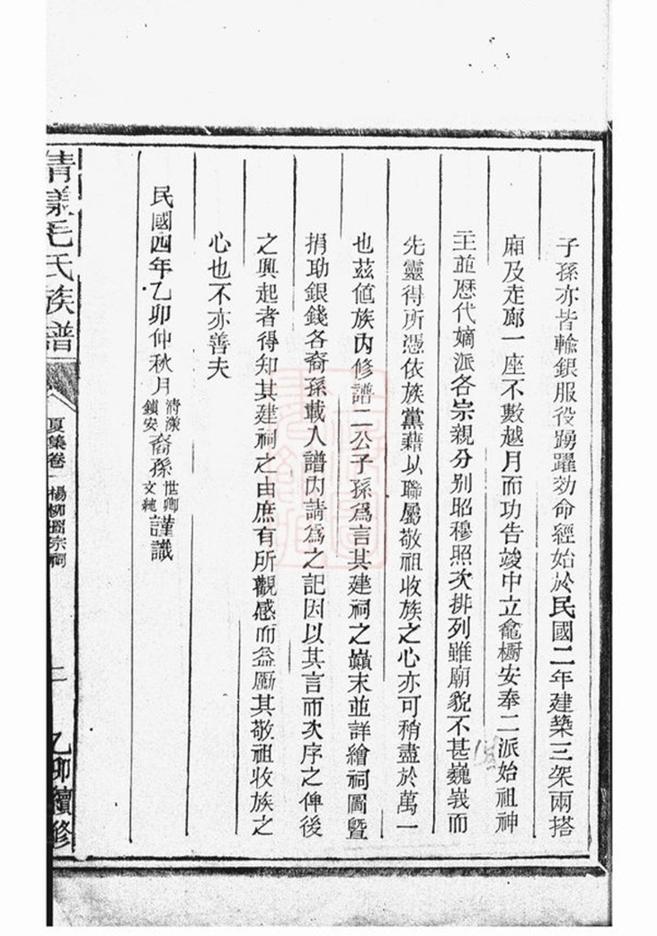 子孫亦皆輸銀服役踴躍効命經始於民國二年建築三架兩搭
廂及走廊一座不數越月而功告竣中立龕橱安奉二派始祖神
主並歷代嫡派各宗親分别昭穆照次排列雖廟貌不甚巍峩而
先靈得所憑依族黨藉以聯屬敬祖收族之心亦可稍盡於萬一
也茲値族內修譜二公子孫爲言其建祠之巔末並詳繪祠圖曁
捐助銀錢各裔孫載入譜內請爲之記因以其言而次序之俾後
之興起者得知其建祠之由庶有所觀感而益勵其敬祖收族之
心也不亦善夫
民國四年乙卯仲秋月清漾鎮安裔孫世卿文純謹識
清漾毛氏族譜
夏集卷一楊柳宗祠
二
乙卯續修